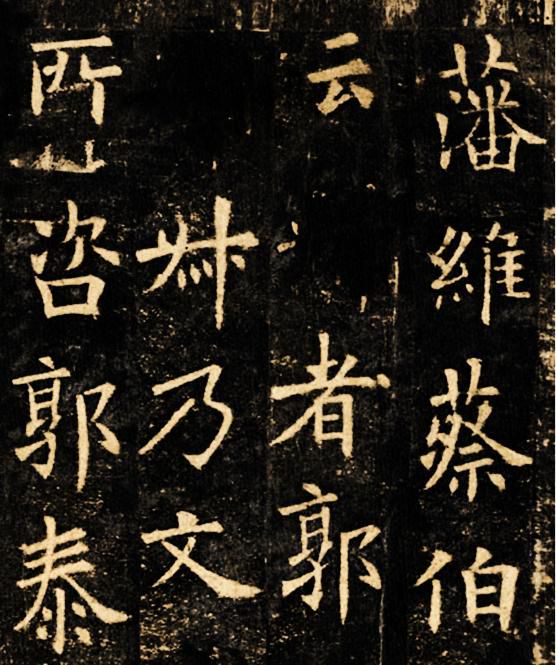 藩維蔡伯
云者郭
叔乃文
所咨郭泰